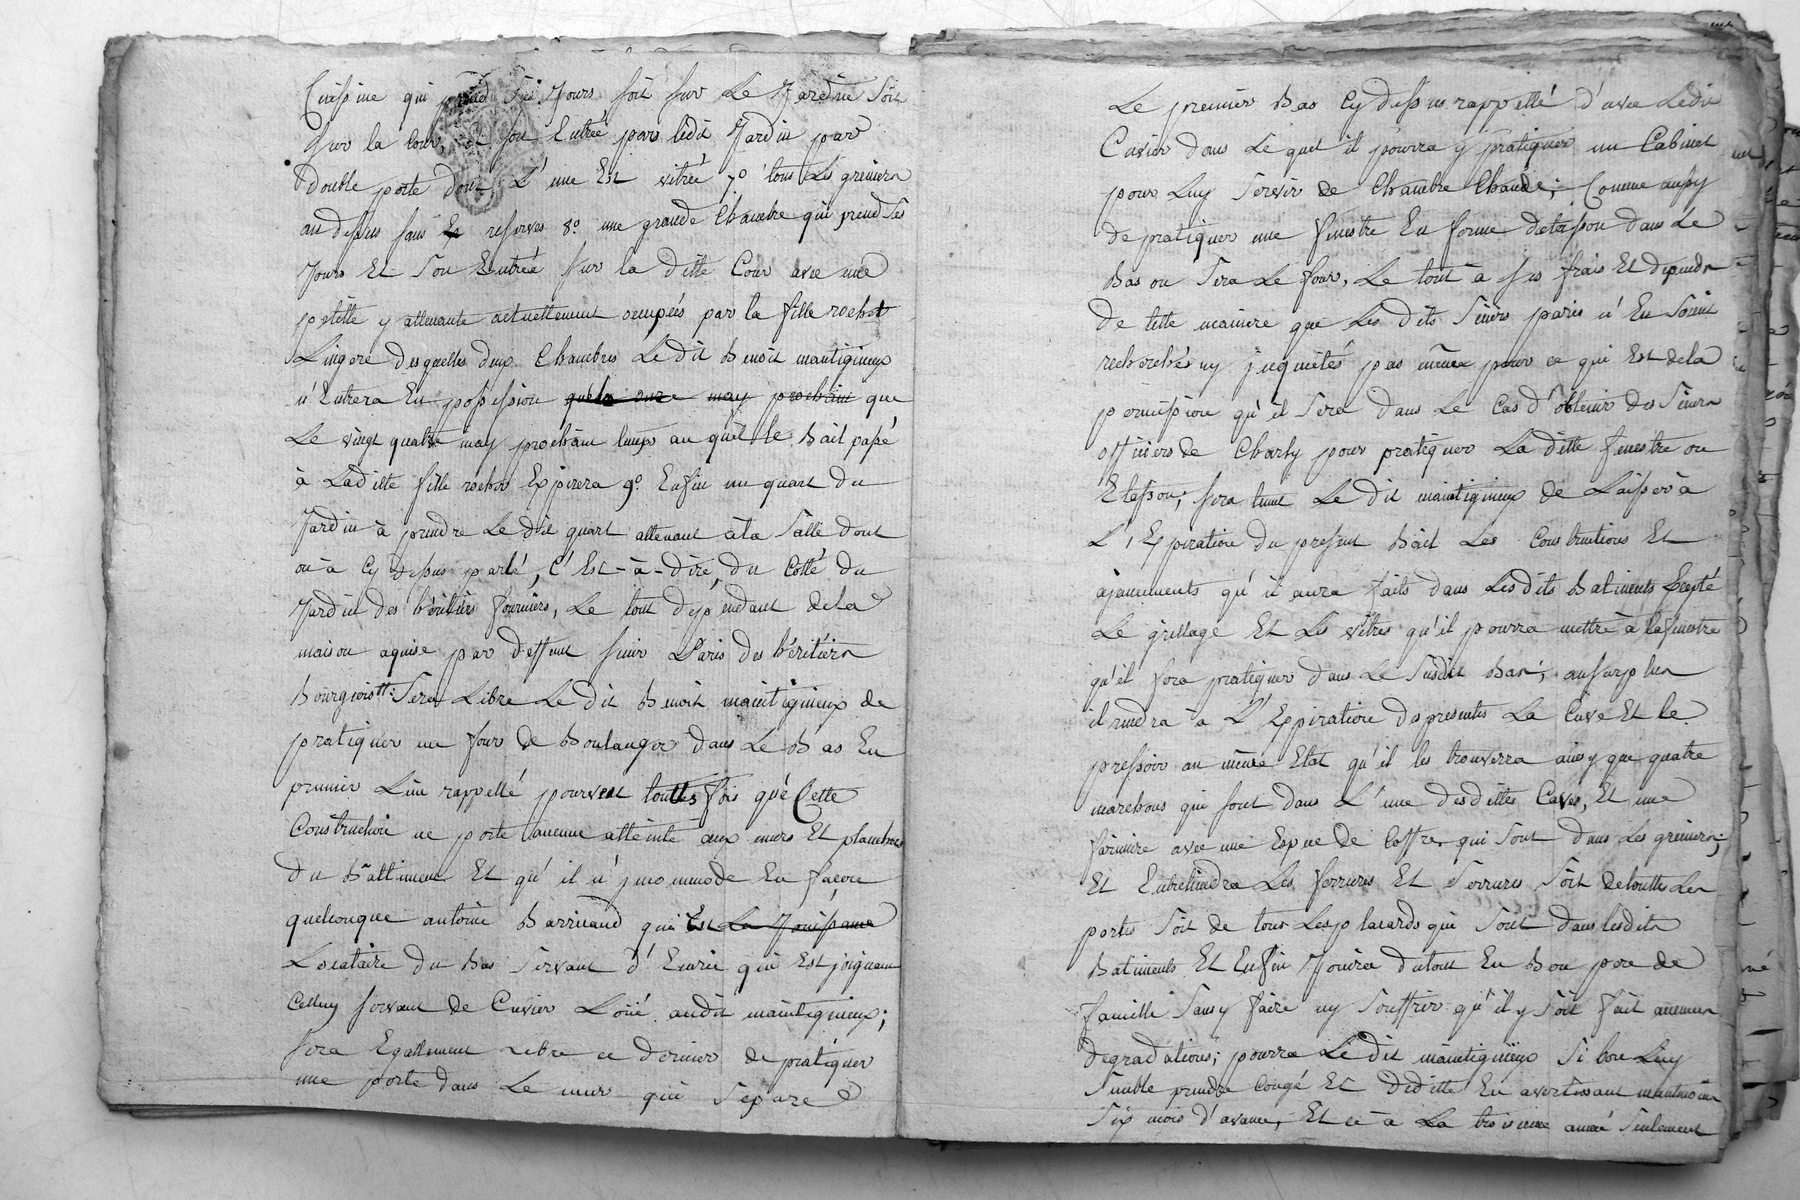 Cuissine qui prend Ses Jours soit sur Le Jardin soit
sur la Cour, et son Entrée par ledit Jardin par
Double porte dont L'une Est vitrée 7° tous Les greniers
au dessus sans reserves 8° une grande Chambre qui prend Ses
Jours Et Son Entrée sur la ditte Cour avec une
petitte y attenante actuellement occupés par la fille rochet
Lingere desquelles deux Chambres Ledit Benoit mantigneux
n'Entrera En possission que le may prochain que
Le vingt quatre may prochain temps au quel le Bail passé
à Laditte fille rochet Expirera 9° Enfin un quart du
Jardin à prendre Le dit quart attenant à la Salle dont
on à Cy dessus parlé, C'Est-à-dire, du Cotté du
Jardin des héritiers fourniers, Le tout dépendant de la
maison aquise par deffunt sieur Paris des héritiers
Bourgeois: Sera Libre Ledit Benoit maintigneux de
pratiquer un four de Boulanger dans Le Bas En
premier Lieu rappellé pourveut touttes fois que Cette
Construction ne porte aucune atteinte aux murs Et planchers
Du Battiment Et qu'il n'jncommode En facon
quelconque antoine Barricaud qui Est La Jouissance
Locataire du Bas Servant d'Ecurie qui Est joignant
Celluy servant de Cuvier Loüé audit maintigneux;
sera Egallement Libre ce dernier de pratiquer
une porte dans Le mur qui Separe
Le premier Bas Cy dessus rappellé d'avec Ledit
Cuvier dans Le quel il pourra y pratiquer un Cabinet
pour Luy Servir de Chambre Chaude; Comme aussy
de pratiquer une fenestre En forme dans Le
Bas ou Sera Le four, Le tout à ses frais Et depends
De telle maniere que Les dits Sieurs paris n'En Soient
recherchés ny jnquiétés pas même pour ce qui Est de la
permission qu'il Sera dans Le Cas d'obtenir des Sieurs
officiers de Charly pour pratiquer La ditte fenestre ou
; sera tenu Le dit maintigneux de Laisser à
L'Expiration du present Bail Les Constructions Et
ajancements qu'il aura faits dans Lesdits Batiments Excepté
Le grillage Et Les vitres qu'il pourra mettre à la fenestre
qu'il fera pratiquer dans Le Susdit Bas; au surplus
il rendra à L'Expiration des presentes La Cuve Et le
pressoir au même Etat qu'il les trouverra ainsy que quatre
marchons qui sont dans L'une desdittes Caves, Et une
fariniere avec une Espece de Coffre qui Sont dans Les greniers;
Et Entretiendra Les ferrures Et Serrures Soit de touttes Les
portes Soit de tous Les placards qui Sont dans lesdits
Batiments Et Enfin Jouira du tout En Bon pere de
famille Sans y faire ny Souffrir qu'il y Soit fait aucunes
degradations; pourra Ledit maintigneux Si bon Luy
Semble prendre Congé Et Deditte En avertissant
Six mois d'avance, Et ce à La troisieme année Seulement